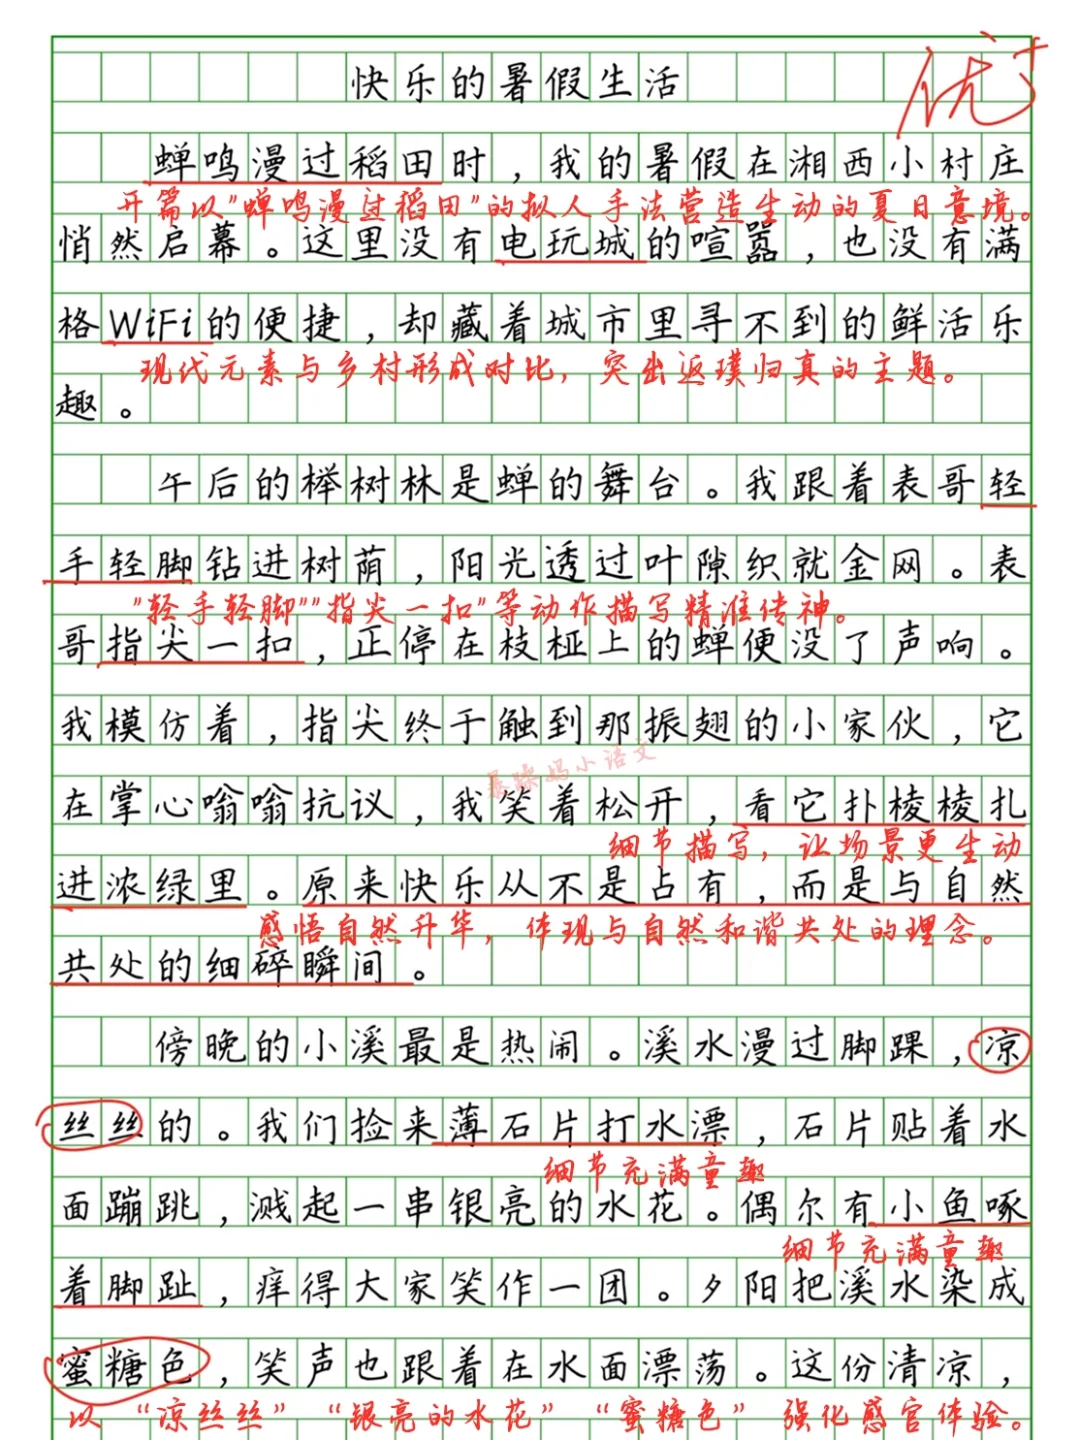 快乐的暑假生活
优+
蝉鸣漫过稻田时，我的暑假在湘西小村庄
开篇以"蝉鸣漫过稻田"的拟人手法营造生动的夏日意境。
悄然启幕。这里没有电玩城的喧嚣，也没有满
格WiFi的便捷，却藏着城市里寻不到的鲜活乐
现代元素与乡村形成对比，突出返璞归真的主题。
趣。
午后的榉树林是蝉的舞台。我跟着表哥轻
手轻脚钻进树荫，阳光透过叶隙织就金网。表
"轻手轻脚""指尖一扣"等动作描写精准传神。
哥指尖一扣，正停在枝桠上的蝉便没了声响。
我模仿着，指尖终于触到那振翅的小家伙，它
暴躁妈小语文
在掌心嗡嗡抗议，我笑着松开，看它扑棱棱扎
细节描写，让场景更生动
进浓绿里。原来快乐从不是占有，而是与自然
感悟自然升华，体现与自然和谐共处的理念。
共处的细碎瞬间。
傍晚的小溪最是热闹。溪水漫过脚踝，凉
丝丝的。我们捡来薄石片打水漂，石片贴着水
细节充满童趣
面蹦跳，溅起一串银亮的水花。偶尔有小鱼啄
细节充满童趣
着脚趾，痒得大家笑作一团。夕阳把溪水染成
蜜糖色，笑声也跟着在水面漂荡。这份清凉，
以“凉丝丝”“银亮的水花”“蜜糖色”强化感官体验。